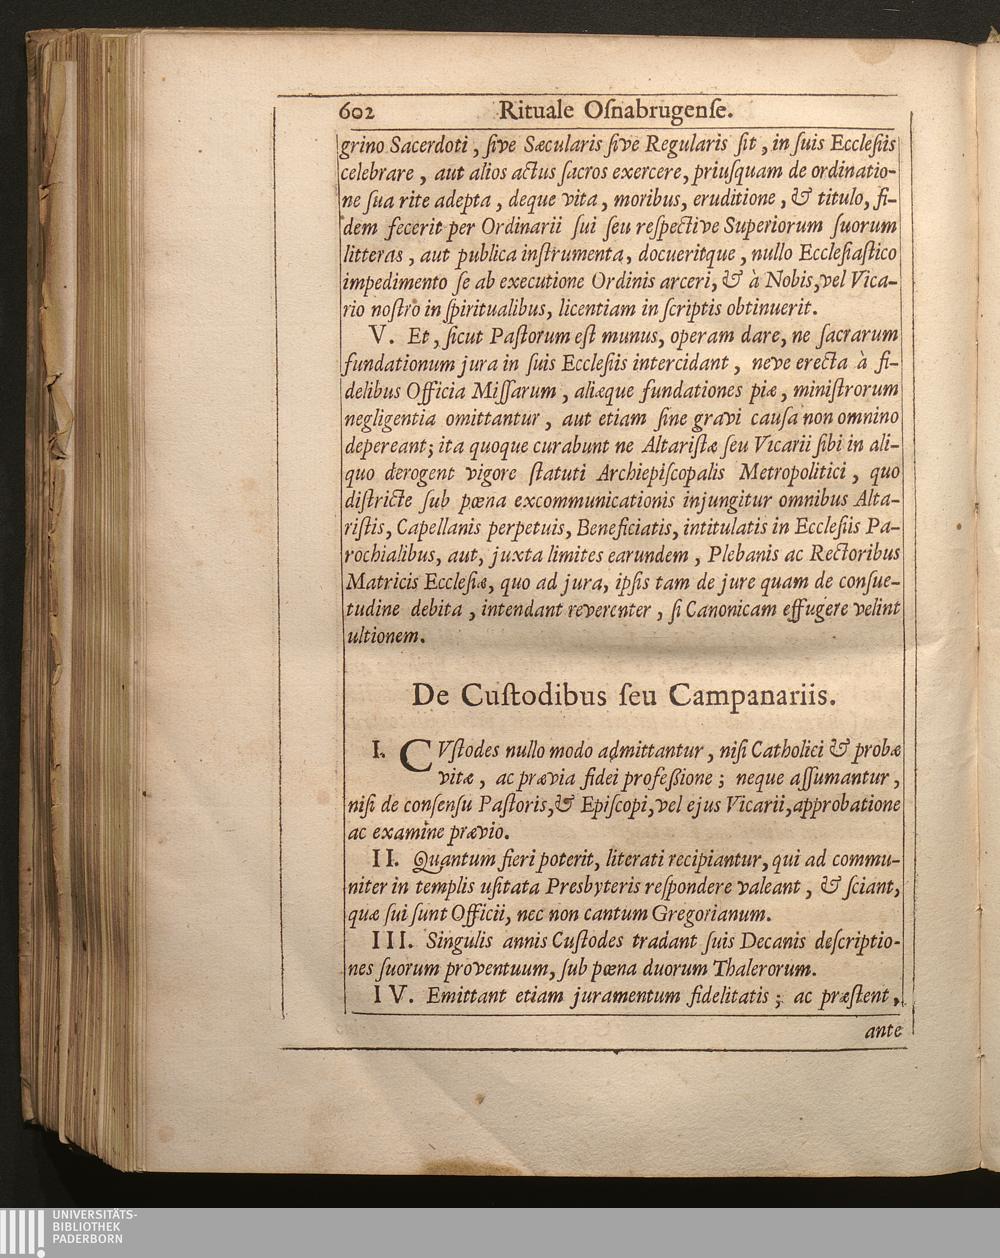 602 Rituale Oſnabrugenſe.
grino Sacerdoti, ſive Sæcularis ſive Regularis ſit, in ſuis Eccleſiis
celebrare, aut alios actus ſacros exercere, priuſquam de ordinatio-
ne ſua rite adepta, deque vita, moribus, eruditione, & titulo, fi-
dem fecerit per Ordinarii ſui ſeu reſpective Superiorum ſuorum
litteras, aut publica inſtrumenta, docueritque, nullo Eccleſiaſtico
impedimento ſe ab executione Ordinis arceri, & à Nobis, vel Vica-
rio noſtro in ſpiritualibus, licentiam in ſcriptis obtinuerit.
V. Et, ſicut Paſtorum eſt munus, operam dare, ne ſacrarum
fundationum jura in ſuis Eccleſiis intercidant, neve erecta à fi-
delibus Officia Miſſarum, aliæque fundationes piæ, miniſtrorum
negligentia omittantur, aut etiam ſine gravi cauſa non omnino
depereant; ita quoque curabunt ne Altariſtæ ſeu Vicarii ſibi in ali-
quo derogent vigore ſtatuti Archiepiſcopalis Metropolitici, quo
diſtricte ſub pœna excommunicationis injungitur omnibus Alta-
riſtis, Capellanis perpetuis, Beneficiatis, intitulatis in Eccleſiis Pa-
rochialibus, aut, juxta limites earundem, Plebanis ac Rectoribus
Matricis Eccleſiæ, quo ad jura, ipſis tam de jure quam de conſue-
tudine debita, intendant reverenter, ſi Canonicam effugere velint
ultionem.
De Cuſtodibus ſeu Campanariis.
I. CVſtodes nullo modo admittantur, niſi Catholici & probæ
vitæ, ac prævia fidei profeßione; neque aſſumantur,
niſi de conſenſu Paſtoris, & Epiſcopi, vel ejus Vicarii, approbatione
ac examine prævio.
II. Quantum fieri poterit, literati recipiantur, qui ad commu-
niter in templis uſitata Presbyteris reſpondere valeant, & ſciant,
quæ ſui ſunt Officii, nec non cantum Gregorianum.
III. Singulis annis Cuſtodes tradant ſuis Decanis deſcriptio-
nes ſuorum proventuum, ſub pœna duorum Thalerorum.
IV. Emittant etiam juramentum fidelitatis; ac præſtent,
ante
UNIVERSITÄTS-
BIBLIOTHEK
PADERBORN